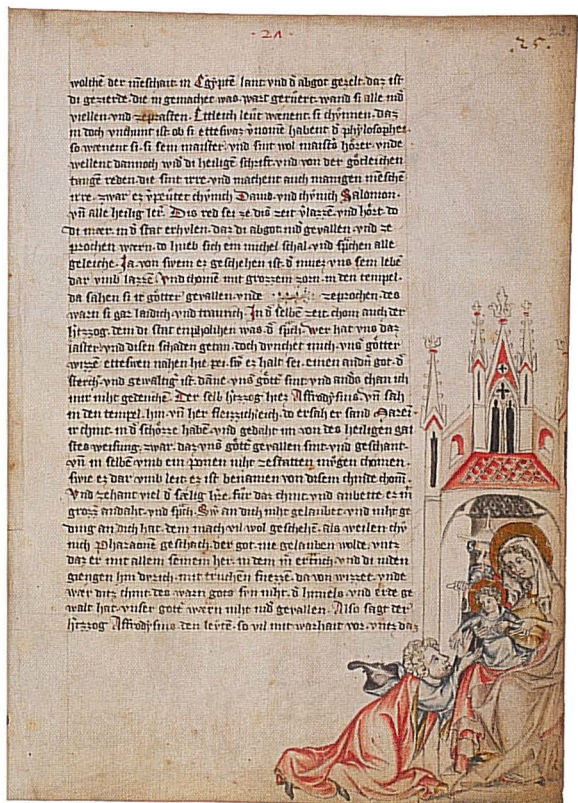 · 21 ·
25.
wolchē der mēschait. in Egyptē lant vnd d̄ abgot gezelt. daz ist
di gezierde. die in gemachet was. wart gerüert. wand si alle nid̄
viellen. vnd zeprasten. Ettleich leüt wænent. si chünnen. daz
in doch vnchunt ist. ob si etteswaz v̄nomē habent d̄ phylosophei.
so wænent si. si sein maister. vnd sint vol maist͛s hōrer. vnde
wellent dannoch wid̄ di heiligē schrift. vnd von der götleichen
taugē reden. die sint irre. vnd machent auch manigen mēschē
irre. zwar ez v̄preutet chv̄nich Dauid. vnd chünich Salomon.
vn̄ alle heilig leüt. Dis red sei ze dis͛ zeit v̄lazzē. vnd hört. do
di mær. in d̄ stat erhullen. daz di abgot nid̄ gevallen. vnd ze
prochen wærn. do hueb sich ein michel schal. vnd sp͛chen alle
geleiche. Ja. von swem ez geschehen ist. d̄ muez vns sein lebē
dar vmb lazzē. vnd chomē mit grozzem zorn. in den tempel.
da sahen si ir gȫter gevallen. vnde zeprochen. des
warn si gar laidich. vnd traurich. In d̄ selbē zeit. chom auch der
h͛tzog. dem di stat enpholihen was. d̄ sp͛ch. wer hat vns daz
laster. vnd disen schaden getan. doch dvnchet mich. vns götter
wizzē etteswen nahen hie pei. sw͛ ez halt sei. einen andn̄ got. d̄
sterch͛. vnd gewaltig͛ ist. danne. vns͛ götē sint. vnd and͛s chan ich
mir niht gedenchē. Der selb h͛tzog hiez Affrodysius. vn̄ sah
in den tempel. hin vn̄ her fleizzichleich. do ersach er sand Marē.
ir chint. in d̄ schözze habē. vnd gedaht im von des heiligen gai
stes weisung. zwar. daz vns͛ götē gevallen sint. vnd geschant.
vn̄ in selbē vmb ein ponen niht ze staten mügen chomen.
swie ez dar vmb leit. ez ist benamen von disem chinde chom̄.
Vnd zehant viel d̄ sælig h͛re. für daz chint. vnd anbette ez in
grozz͛ andaht. vnd sp͛ch. Sw͛ an dich niht gelaubet. vnd niht ge
ding͛ an dich hat. dem mach vil wol geschehē. als weilen chv̄
nich Pharaonē geschach. der got. nie gelauben wolde. vntz
daz er mit allem seinem her. in dem m͛ ertrich. vnd di iuden
giengen hin durch. mit truchen füezzē. da von wizzet. vnde
wer ditz chint. des warn gots sv̄n niht. d̄ himels. vnd erde ge
walt hat. vnser gött͛ wærn niht nid̄ gevallen. Also sagt der
h͛tzog Affrodysius. den lev̄tē. so vil mit warhait vor. vntz daz